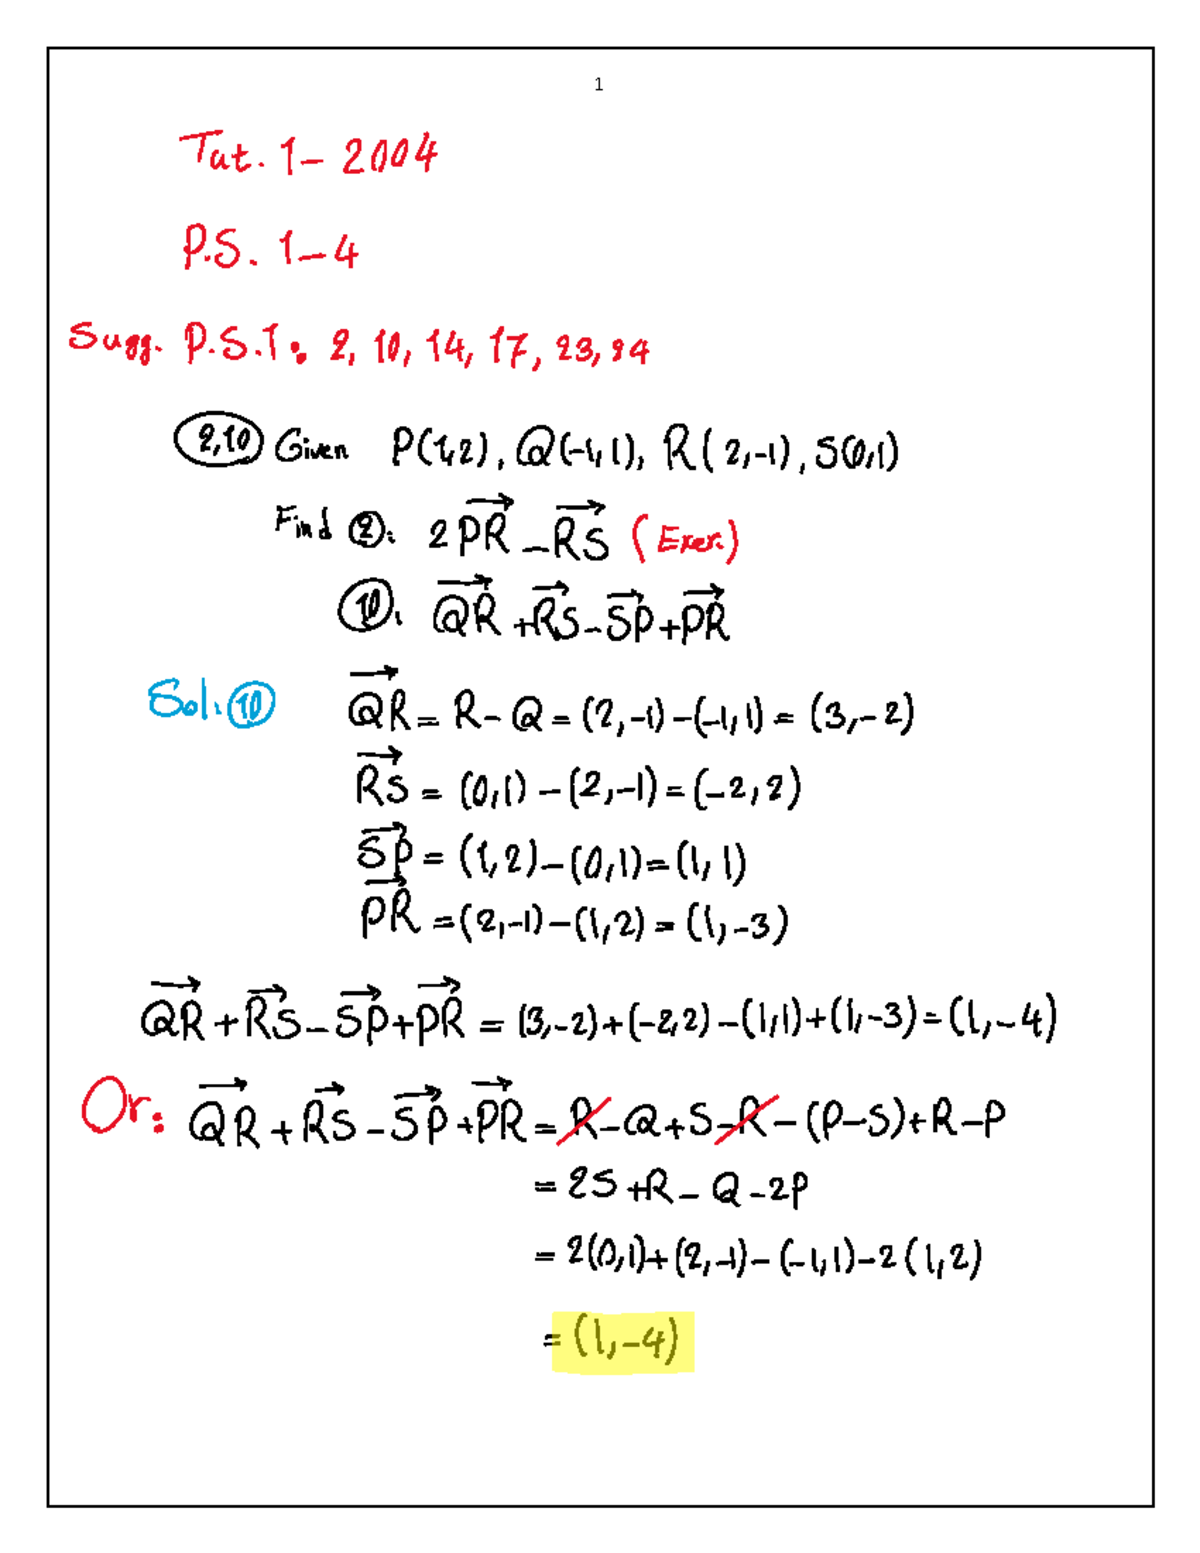 1
Tut. 1 - 2004
P.S. 1-4
Sugg. P.S.1: 2, 10, 14, 17, 23, 24
2,10 Given P(1,2), Q(-1,1), R(2,-1), S(0,1)
Find ②: 2PR⃗ - RS⃗ (Exer.)
⑩. QR⃗ + RS⃗ - SP⃗ + PR⃗
Sol. ⑩ QR⃗ = R - Q = (2,-1) - (-1,1) = (3,-2)
RS⃗ = (0,1) - (2,-1) = (-2,2)
SP⃗ = (1,2) - (0,1) = (1,1)
PR⃗ = (2,-1) - (1,2) = (1,-3)
QR⃗ + RS⃗ - SP⃗ + PR⃗ = (3,-2) + (-2,2) - (1,1) + (1,-3) = (1,-4)
Or: QR⃗ + RS⃗ - SP⃗ + PR⃗ = R - Q + S - R - (P-S) + R - P
= 2S + R - Q - 2P
= 2(0,1) + (2,-1) - (-1,1) - 2(1,2)
= (1,-4)